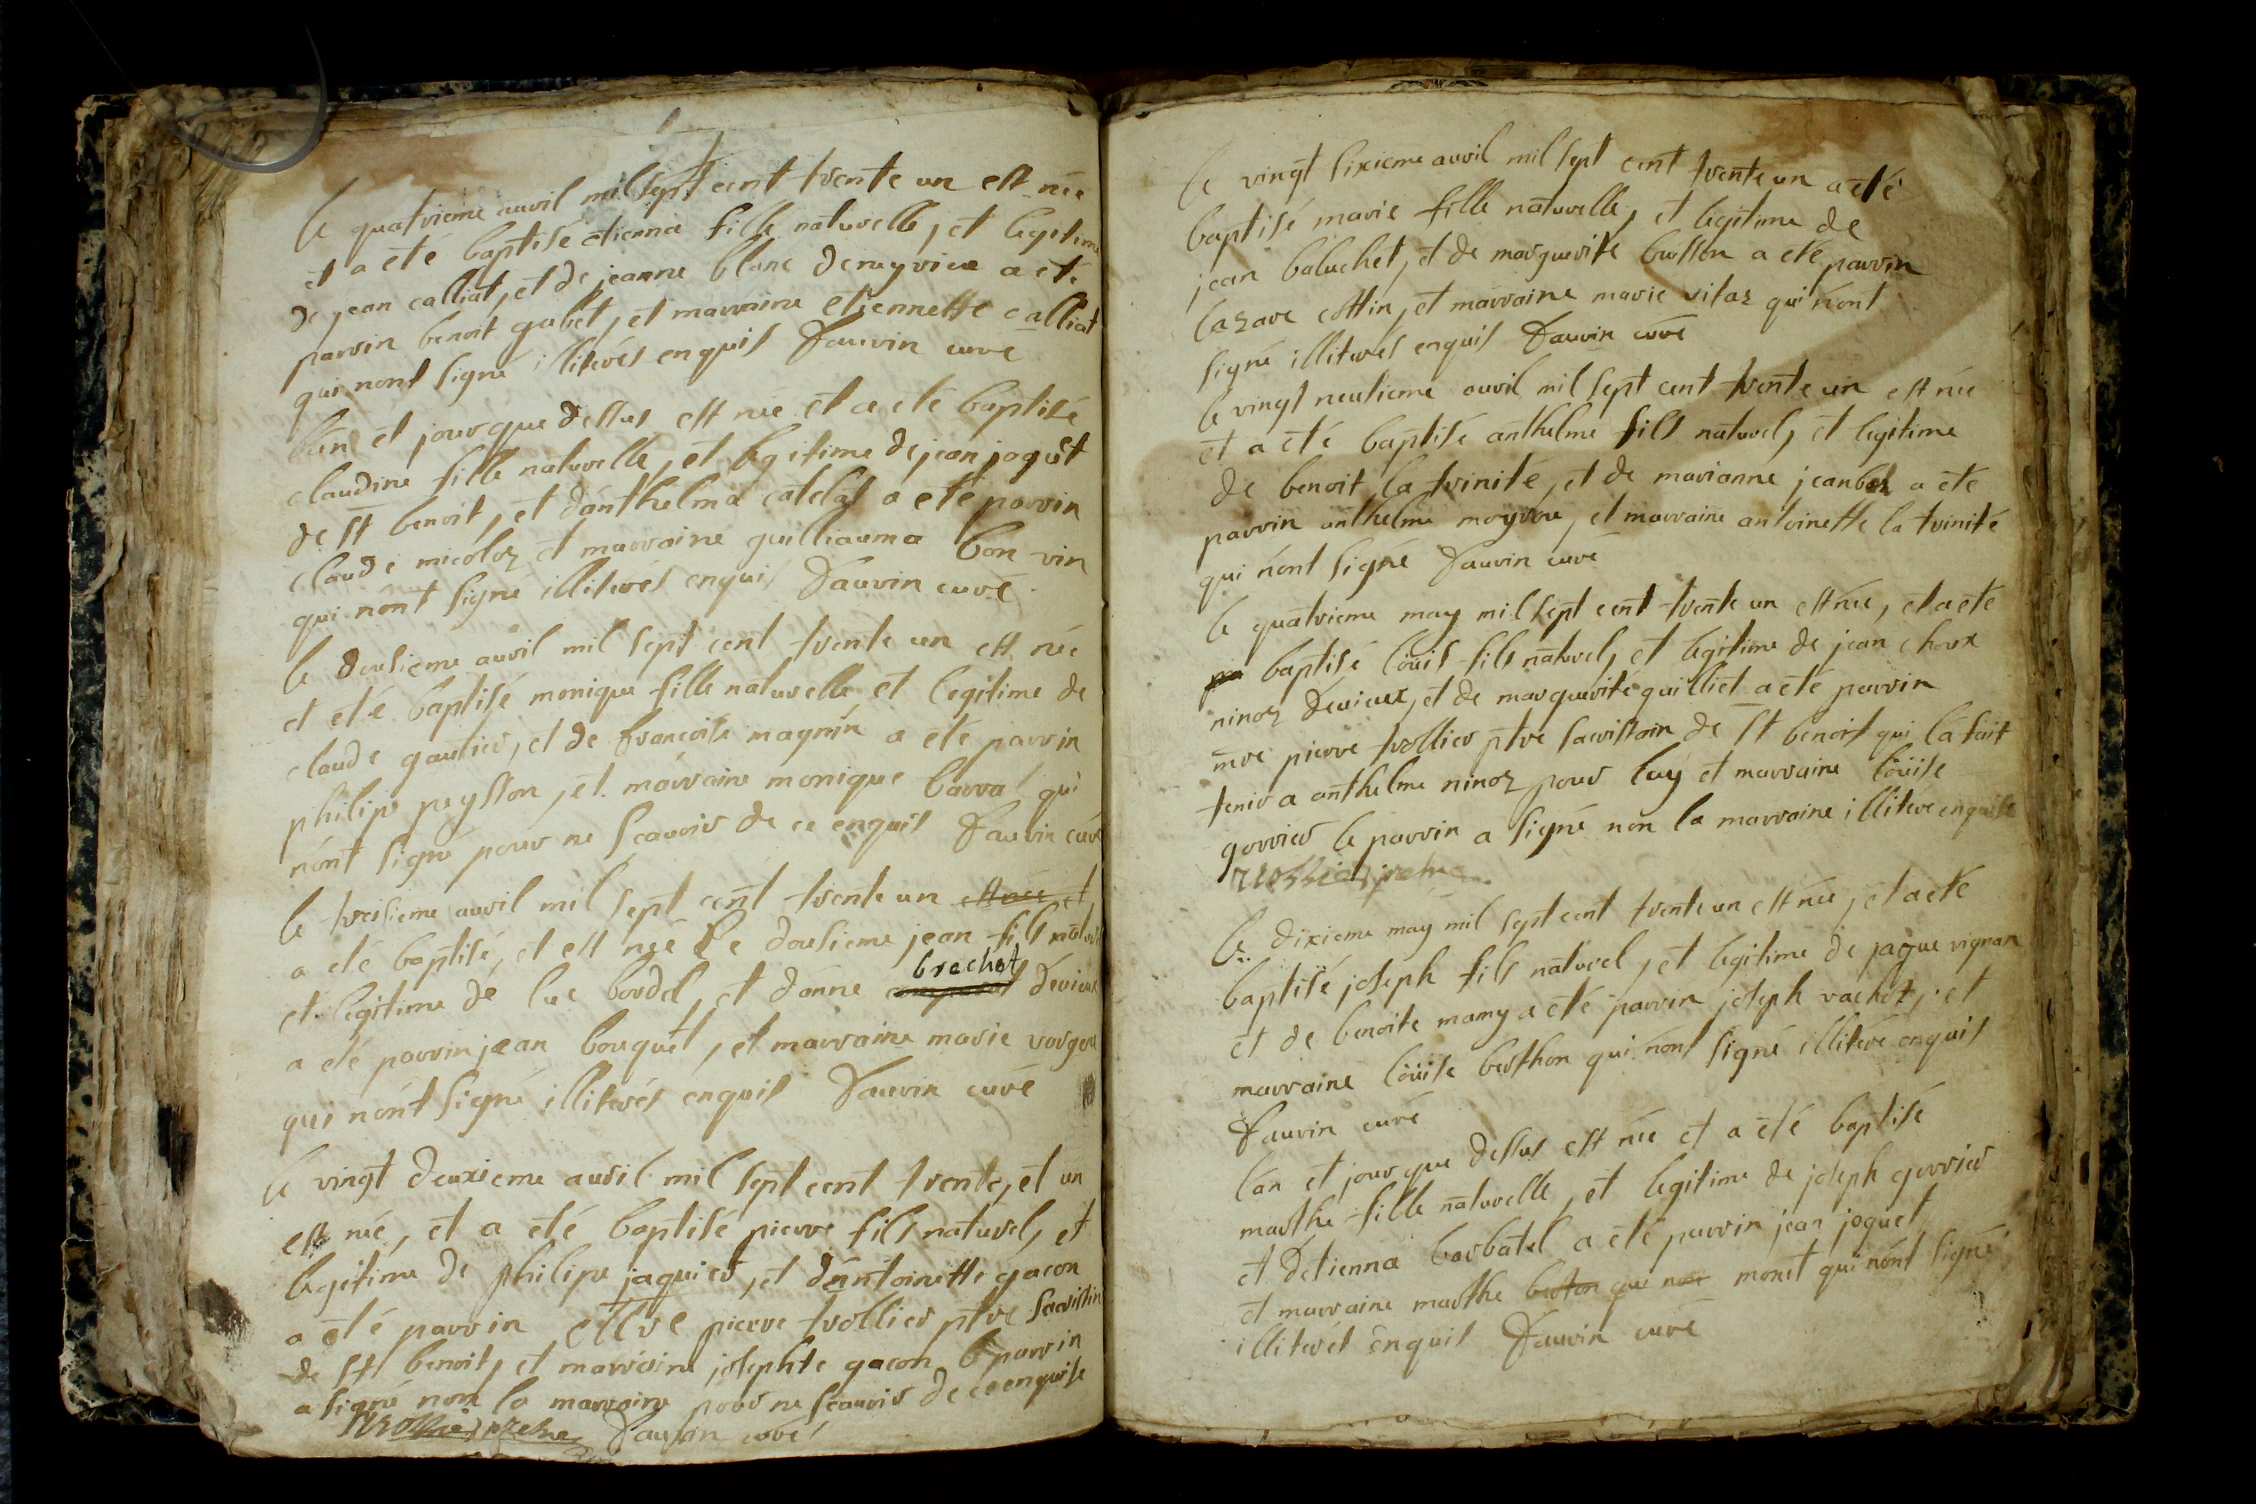 le quatrieme avril mil sept cent trente un est née
et a eté baptisé etienna fille naturelle, et legitime
de jean calliat, et de jeanne blanc demeyrieu a eté
parrin benoit gubet, et marraine etiennette calliat
qui nont signé illiterés enquis Dauvin curé
lan et jour que dessus est née et a eté baptisé
claudine fille naturelle, et legitime de jean joguet
de st benoit, et danthelma catelas a eté parrin
claude micoloz et marraine guilliauma bon vin
qui nont signé illiterés enquis Dauvin curé
le dousieme avril mil sept cent trente un est née
et eté baptisé monique fille naturelle et legitime de
claude gautier, et de francoise magnin a eté parrin
philipe peysson, et marraine monique barral qui
nont signé pour ne scavoir de ce enquis Dauvin curé
le treisieme avril mil sept cent trente un est née et
a eté baptisé, et est né le dousieme jean fils naturel
brachet
et legitime de luc bordel, et danne devieux
a eté parrin jean bouquet, et marraine marie
qui nont signé illiterés enquis Dauvin curé
le vingt deuxieme avril mil sept cent trente, et un
est né, et a eté baptisé pierre fils naturel, et
legitime de philipe jaquier, et dantoinette gacon
a eté parrin pierre trollier ptre sacristin
de st benoit, et marraine josephte gacon le parrin
a signé non la marraine pour ne scauoir de ce enquise
trollier pretre Dauvin curé
le vingt sixieme avril mil sept cent trente un a eté
baptisé marie fille naturelle, et legitime de
jean baluchet, et de marguerite buisson a eté parrin
lazare cottin, et marraine marie vitaz qui nont
signé illiterés enquis Dauvin curé
le vingt neusieme avril mil sept cent trente un est née
et a eté baptisé anthelme fils naturel, et legitime
de benoit la trinité, et de marianne a eté
parrin anthelme moyroux, et marraine antoinette la trinité
qui nont signé Dauvin curé
le quatrieme may mil sept cent trente un est née, et a eté
pa baptisé loüis fils naturel, et legitime de jean choux
ninoz devieux, et de marguerite guilliet a eté parrin
mre pierre trollier ptre sacristain de st benoit qui la fait
tenir a anthelme ninoz pour luy et marraine loüise
gorrier le parrin a signé non la marraine illitere enquise
trollier pretre
le dixieme may mil sept cent trente un est née, et a eté
baptisé joseph fils naturel, et legitime de jaque vignan
et de benoite mamy a eté parrin joseph vachoz, et
marraine loüise berthon qui nont signé illiteré enquis
Dauvin curé
lan et jour que dessus est née et a eté baptisé
marthe fille naturelle, et legitime de joseph gorrier
et detienna barbatel a eté parrin jean joguet
et marraine marthe berton qui non monet qui nont signé
illiterés enquis Dauvin curé